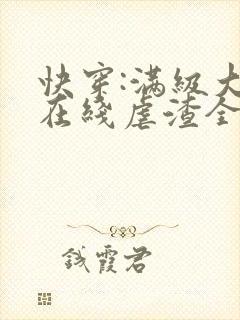 快穿:满级大
在线虐渣全
钱霞君